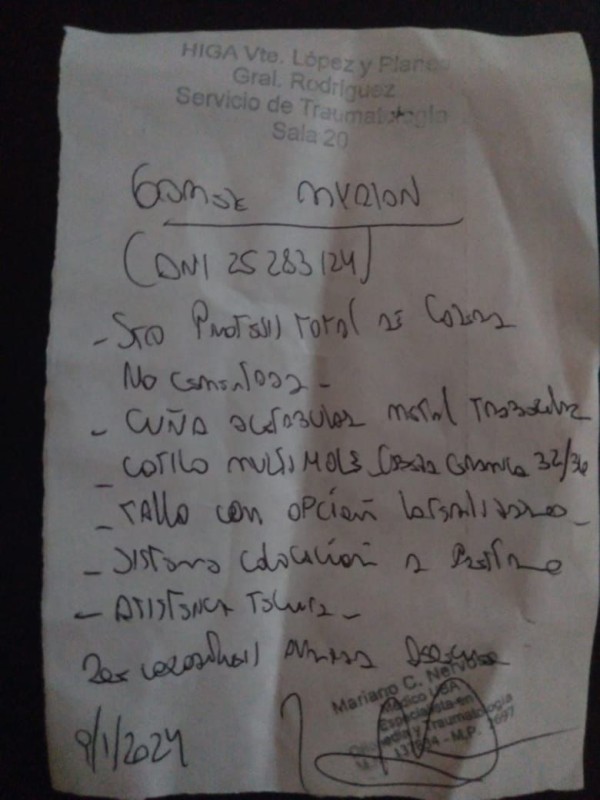 HIGA Vte. López y Planes
Gral. Rodríguez
Servicio de Traumatología
Sala 20
(DNI 25 283 124)
- Sto Protesis Total de Cadera
No cementada -
- Cuña acetabular metal trabecular
- Cotilo multi hole cabeza ceramica 32/36
- Tallo con opción lateralizado -
- Sistema colocación
- Asistencia Tecnica -
9/1/2024
Mariano C.
Médico UBA
Especialista en
Ortopedia y Traumatología